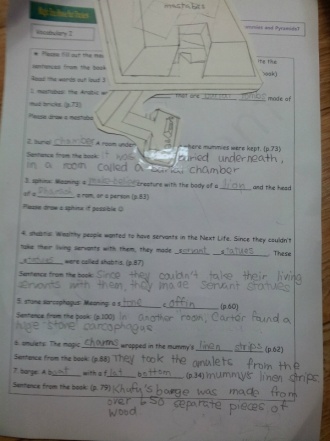 mastabas
Vocabulary I
and Pyramids!
Please fill out the
sentences from the book
Read the words out loud 3
1. mastabas: the Arabic that are made of
mud bricks. (p.73)
Please draw a mastaba
2. burial chamber A room under where mummies were kept. (p.73)
Sentence from the book: it was buried underneath,
in a room called a burial chamber
3. sphinx: Meaning: a creature with the body of a lion and the head
of a Pharaoh a ram, or a person (p.63)
Please draw a sphinx if possible ☺
4. shabtis: Wealthy people wanted to have servants in the Next Life. Since they couldn't
take their living servants with them, they made servant statues. These
were called shabtis. (p.87)
Sentence from the book: Since they couldn't take their living
servants with them, they made servant statues
5. stone sarcophagus: Meaning: a stone coffin (p.60)
Sentence from the book: (p.100) In another room, Carter found a
huge stone sarcophagus
6. amulets: The magic charms wrapped in the mummy's linen strips (p.62)
Sentence from the book: (p.88) They took the amulets from the
mummy's linen strips
7. barge: A boat with a flat bottom (p.34)
Sentence from the book: (p. 79) Khufu's barge was made from
over 650 separate pieces of
wood